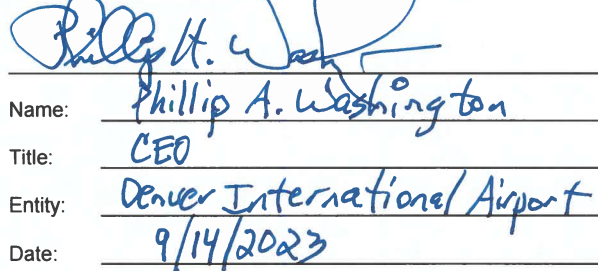 Phillip A. Wash
Name: Phillip A. Washington
Title: CEO
Entity: Denver International Airport
Date: 9/14/2023